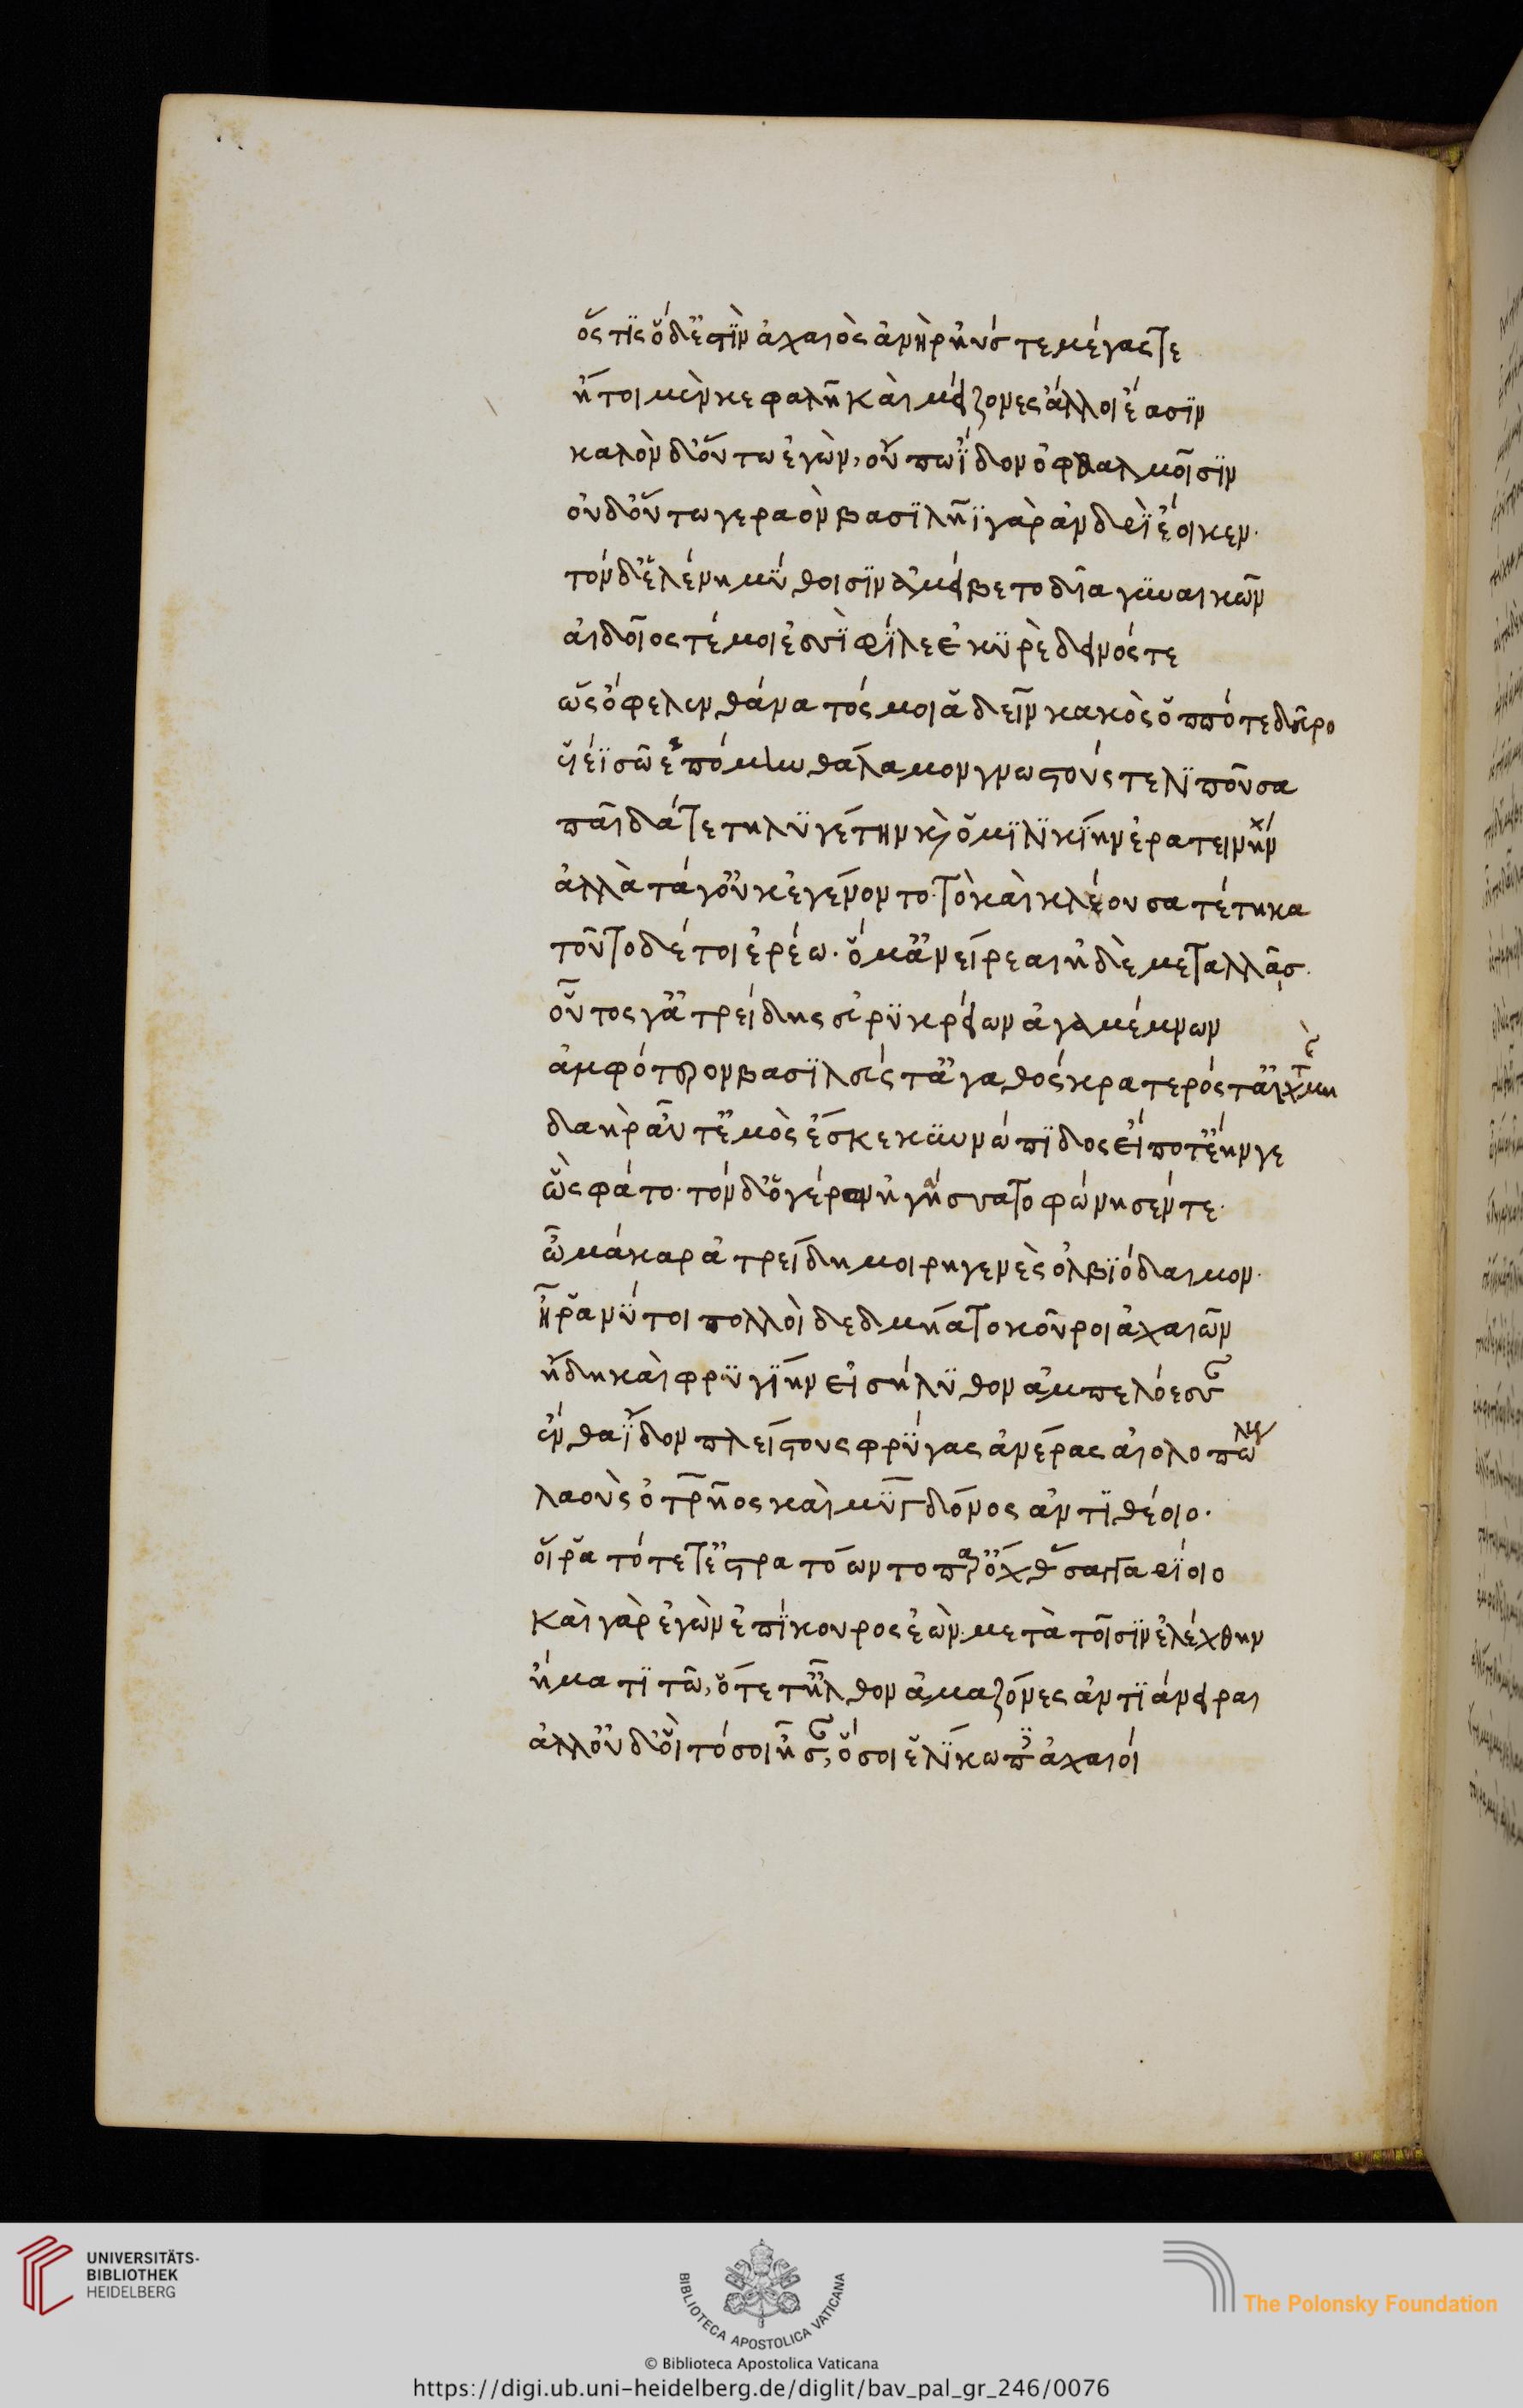 ὅς τις ὅδ' ἐστὶν ἀχαιὸς ἀνὴρ ἠύς τε μέγας τε
ἤτοι μὲν κεφαλῆ καὶ μείζονες ἄλλοι ἔασιν
καλὸν δ' οὕτω ἐγὼν, οὔπω ἴδον ὀφθαλμοῖσιν
οὐδ' οὕτω γεραὸν βασιλῆϊ γὰρ ἀνδρὶ ἔοικεν.
τὸν δ' ἑλένη μύθοισιν ἀμείβετο δῖα γυναικῶν
αἰδοῖος τέ μοι ἐσσὶ φίλε ἑκυρὲ δεινός τε
ὡς ὄφελεν θάνατός μοι ἁδεῖν κακὸς ὁππότε δεῦρο
υἱέϊ σῶ ἑπόμην θάλαμον γνωτούς τε λιποῦσα
παῖδά τε τηλυγέτην κὶ ὁμιλικίην ἐρατεινήν
ἀλλὰ τά γ' οὐκ ἐγένοντο. τὸ καὶ κλέουσα τέτηκα
τοῦτο δέ τοι ἐρέω. ὅ μ' ἀνείρεαι ἠδὲ μεταλλᾶσ.
οὗτος γ' ἀτρείδης εὐρυκρείων ἀγαμέμνων
ἀμφότερον βασιλεύς τ' ἀγαθός κρατερός τ' αἰχμητὴς
δαὴρ αὖτ' ἐμὸς ἔσκε κυνώπιδος εἴ ποτ' ἔην γε
ὣς φάτο. τόν δ' ὁ γέρων ἠγάσσατο φώνησέν τε.
ὦ μάκαρ ἀτρείδη μοιρηγενὲς ὀλβιόδαιμον.
ἦ ῥά νύ τοι πολλοὶ δεδμήατο κοῦροι ἀχαιῶν
ἤδη καὶ φρυγίην εἰσήλυθον ἀμπελόεσσαν
ἔνθα ἴδον πλείστους φρύγας ἀνέρας αἰολοπώλους
λαοὺς ὀτρῆος καὶ μύγδονος ἀντιθέοιο.
οἵ ῥα τότε τ' ἐστρατόωντο παρ' ὄχθας σαγγαρίοιο
καὶ γὰρ ἐγὼν ἐπίκουρος ἐὼν μετὰ τοῖσιν ἐλέχθην
ἤματι τῶ, ὅτε τ' ἦλθον ἀμαζόνες ἀντιάνειραι
ἀλλ' οὐδ' οἳ τόσοι ἦσαν, ὅσοι ἑλίκωπες ἀχαιοί
UNIVERSITÄTS-
BIBLIOTHEK
HEIDELBERG
BIBLIOTECA APOSTOLICA VATICANA
The Polonsky Foundation
© Biblioteca Apostolica Vaticana
https://digi.ub.uni-heidelberg.de/diglit/bav_pal_gr_246/0076